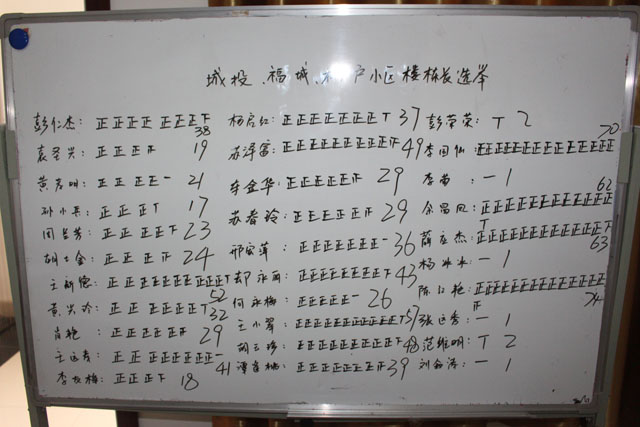 城投、福城、户小区楼栋长选举
彭仁杰：正正正正正正正下 38
袁圣兴：正正正正 19
黄 明：正正正正一 21
孙小兵：正正正T 17
周 芳：正正正正下 23
胡 金：正正正正正 24
王新德：正正正正正正正正正正T 52
黄兴 ：正正正正正正T 32
肖艳：正正正正正正 29
王运 ：正正正正正正正正一 41
李 梅：正正正下 18
杨启红：正正正正正正正T 37
苏泽富：正正正正正正正正正正 49
车金华：正正正正正正 29
苏春玲：正正正正正正 29
邢家 ：正正正正正正正一 36
永 ：正正正正正正正正下 43
何永梅：正正正正正一 26
王小翠：正正正正正正正正正正正T 57
胡玉珍：正正正正正正正正正下 48
正正正正正正正正 39
彭荣荣：T 2
李国仙：正正正正正正正正正正正正正正 70
李 ：一 1
余昌凤：正正正正正正正正正正正正T 62
薛 杰：正正正正正正正正正正正正下 63
杨冰冰：一 1
陈 艳：正正正正正正正正正正正正正正正 74
张远秀：一 1
范维明：T 2
刘 涛：一 1